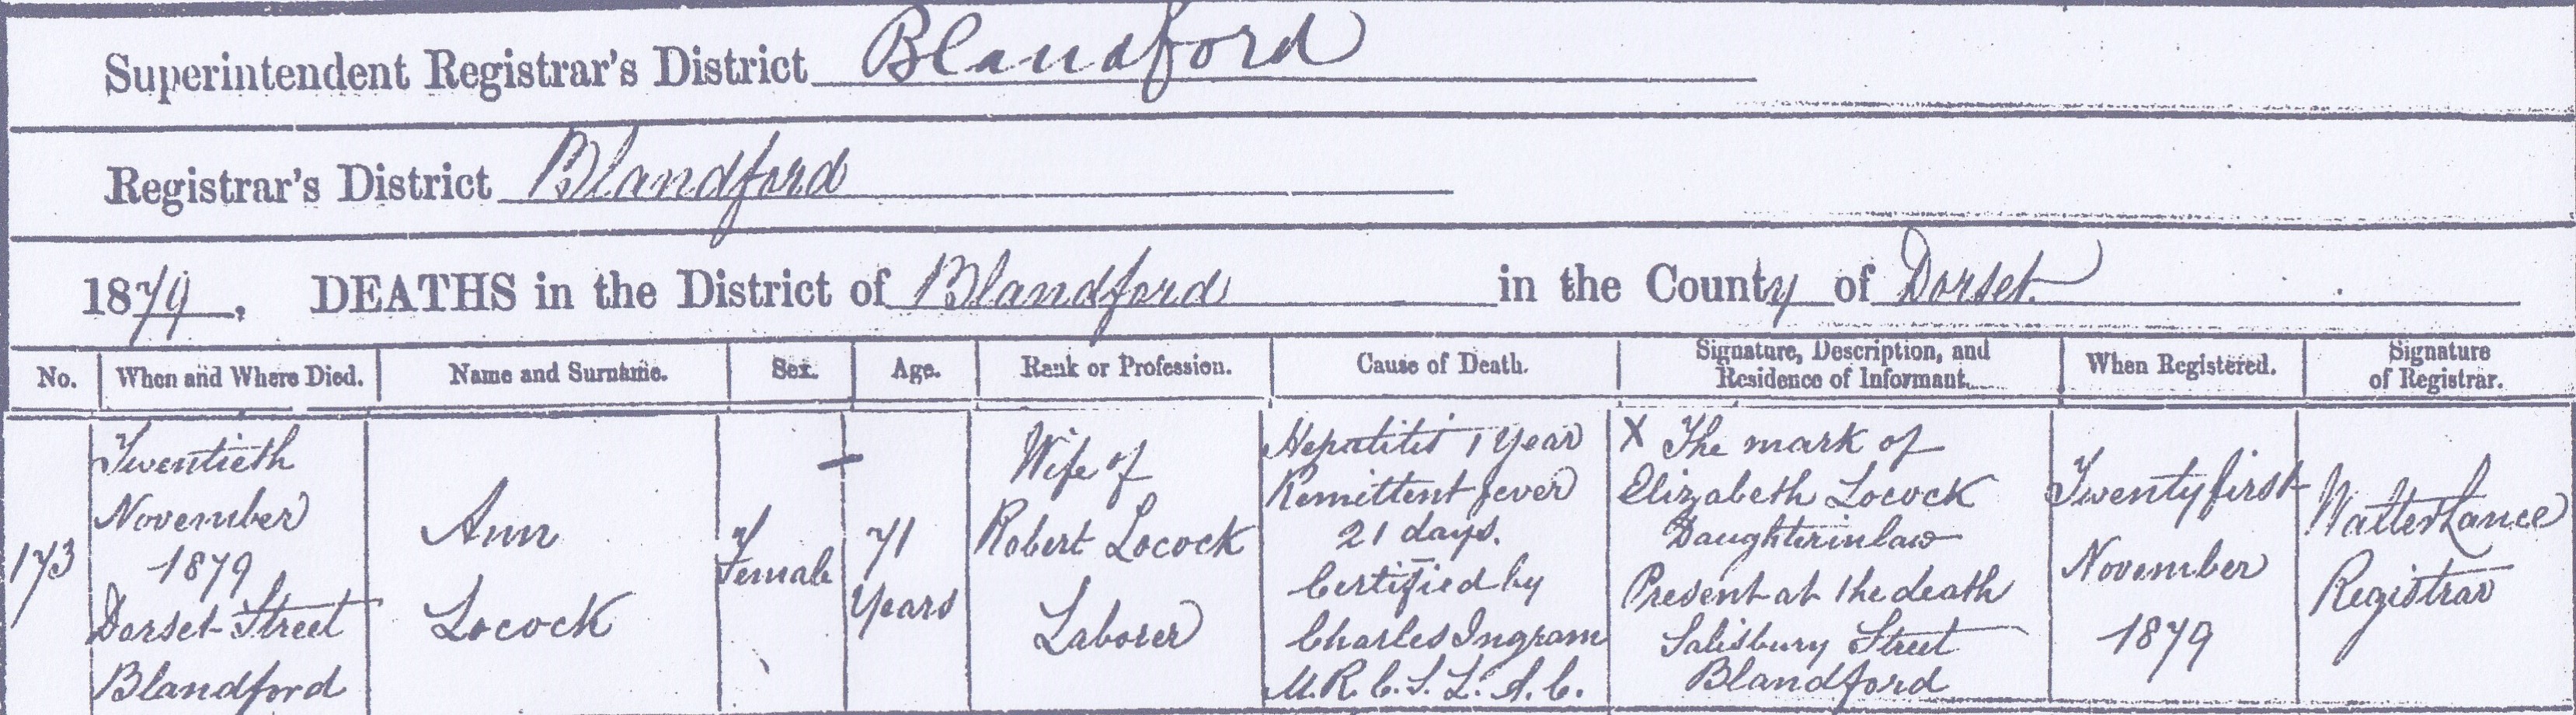 Superintendent Registrar's District Blandford
Registrar's District Blandford
1879. DEATHS in the District of Blandford in the County of Dorset
No.
When and Where Died.
Name and Surname.
Sex.
Age.
Rank or Profession.
Cause of Death.
Signature, Description, and
Residence of Informant.
When Registered.
Signature
of Registrar.
173
Twentieth
November
1879
Dorset Street
Blandford
Ann
Locock
Female
71
Years
Wife of
Robert Locock
Laborer
Hepatitis 1 Year
Remittent fever
21 days.
Certified by
Charles Ingram
M.R.C.S. L.S.A.
X The mark of
Elizabeth Locock
Daughterinlaw
Present at the death
Salisbury Street
Blandford
Twentyfirst
November
1879
Walter Lance
Registrar